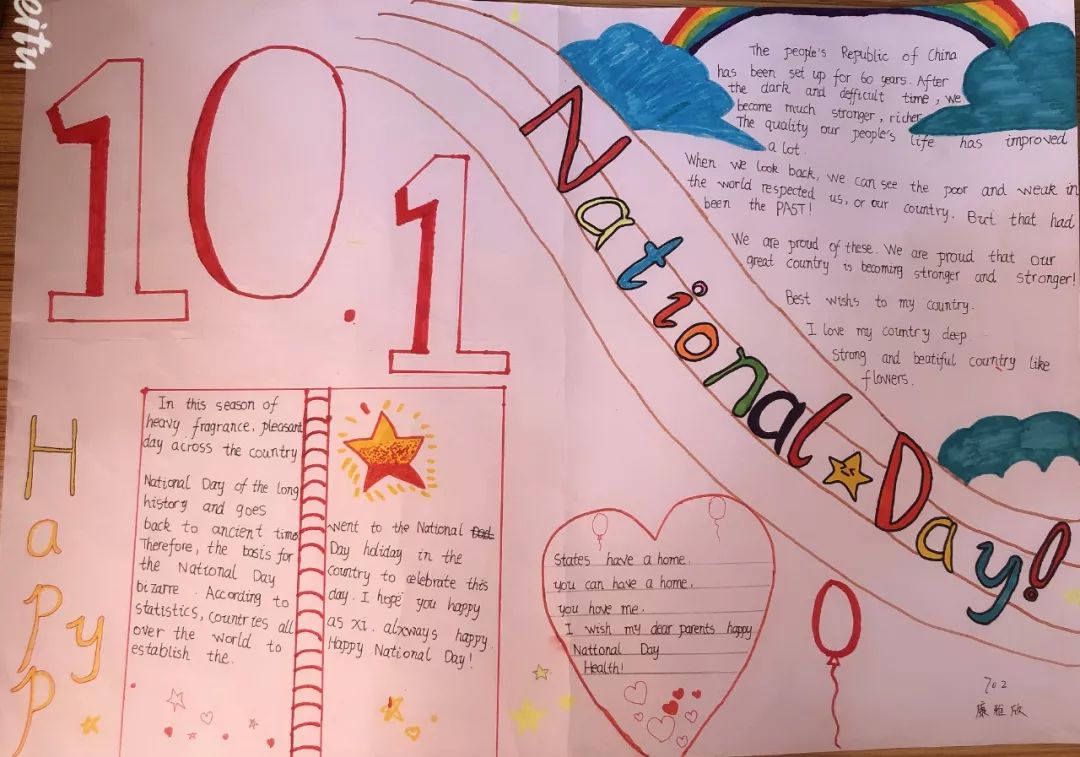 eitu
10.1
National Day!
The people's Republic of China
has been set up for 60 years. After
the dark and defficult time, we
become much stronger, richer
The quality our people's life has improved
a lot.
When we look back, we can see the poor and weak in
the world respected us, or our country. But that had
been the PAST!
We are proud of these. We are proud that our
great country is becoming stronger and stronger!
Best wishs to my country.
I love my country deep
Strong and beatiful country like
flowers.
Happy
In this season of
heavy fragrance, pleasant
day across the country
National Day of the long
history and goes
back to ancient time
Therefore, the basis for
the National Day
bizarre. According to
statistics, countries all
over the world to
establish the.
went to the National
Day holiday in the
country to celebrate this
day. I hope you happy
as xi. alxways happy.
Happy National Day!
States have a home.
you can have a home.
you have me.
I wish my dear parents happy
National Day
Health!
702
康雅欣